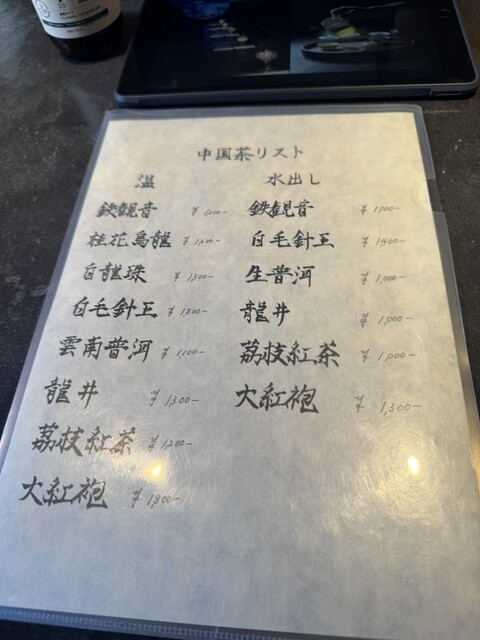 中国茶リスト
温
鉄観音 ¥1,200-
桂花烏龍 ¥1,200-
白龍珠 ¥1,300-
白毛針王 ¥1,800-
雲南普洱 ¥1,100-
龍井 ¥1,300-
荔枝紅茶 ¥1,200-
大紅袍 ¥1,800-
水出し
鉄観音 ¥1,000-
白毛針王 ¥1,400-
生普洱 ¥1,000-
龍井 ¥1,000-
荔枝紅茶 ¥1,000-
大紅袍 ¥1,300-